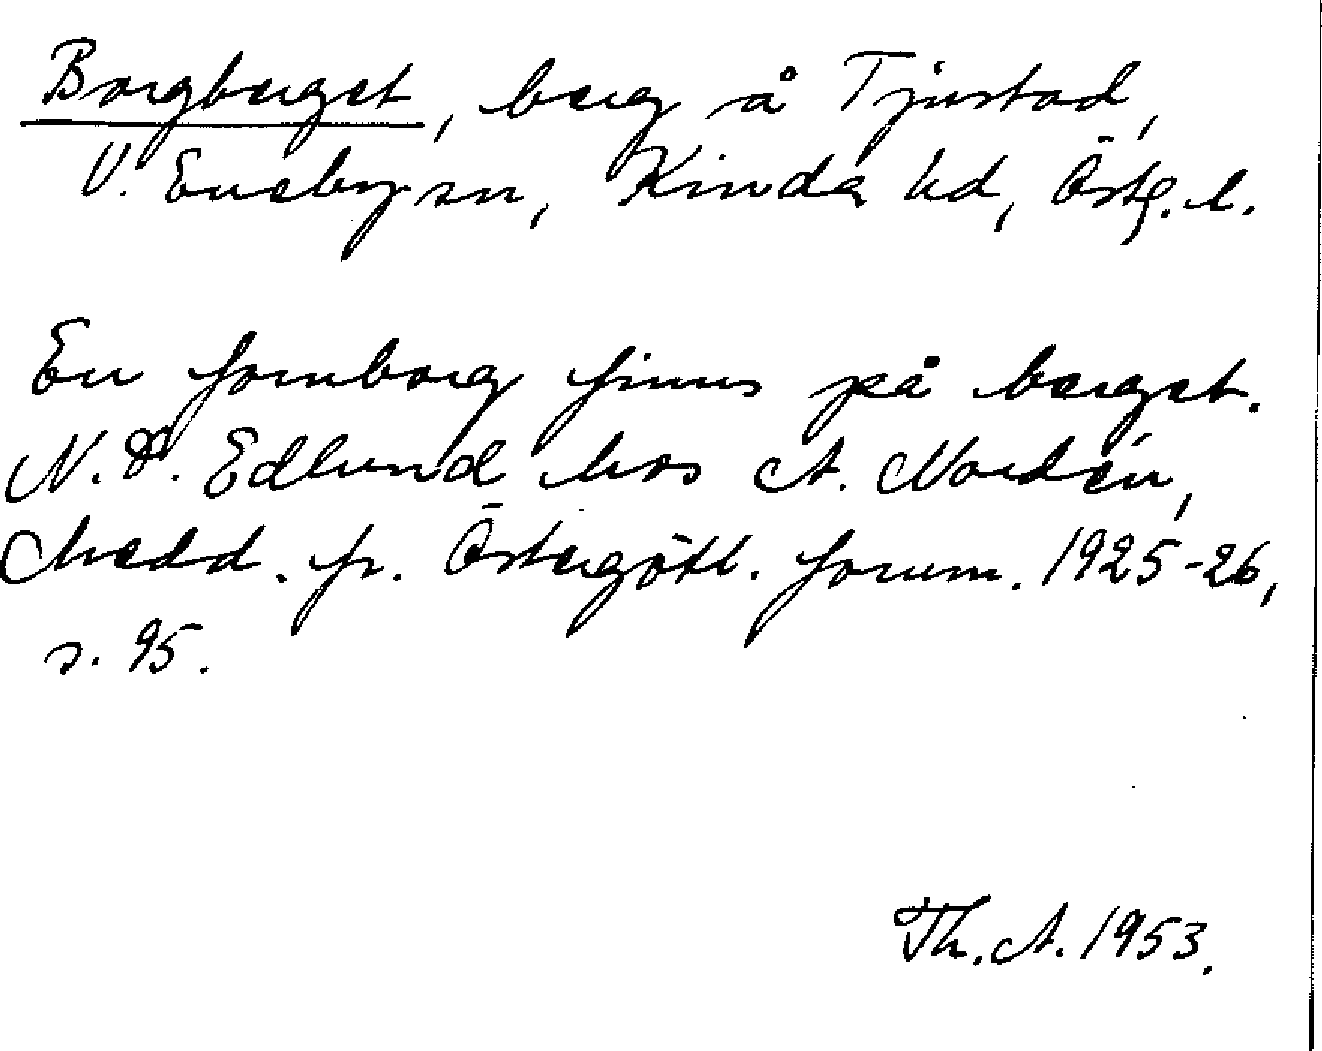 Borgberget, berg å Tjustad,
V. Eneby sn, Kinda hd, Östg. l.
En fornborg finns på berget.
N. D. Edlund hos A. Nordén,
Medd. fr. Östergötl. fornm. 1925-26,
s. 95.
Th. A. 1953.